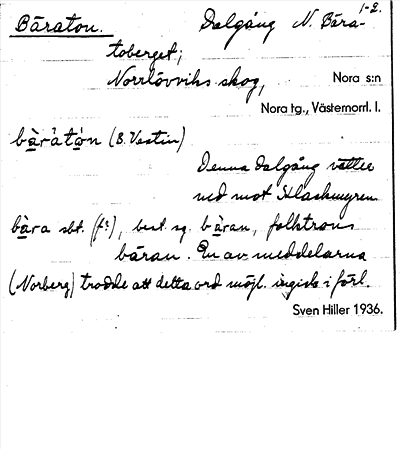 1-2.
Bäraton. Dalgång N. Bära-
toberget;
Norrlövviks skog,
Nora s:n
Nora tg., Västernorrl. l.
bä̀ratòn (B. Vestin)
Denna dalgång vetter
ned mot Hlackmyren
bä̀ra sbt. (f?), best. sg. bä̀ran, folktrons
bäran. En av meddelarna
(Norberg) trodde att detta ord möjl. ingick i förl.
Sven Hiller 1936.